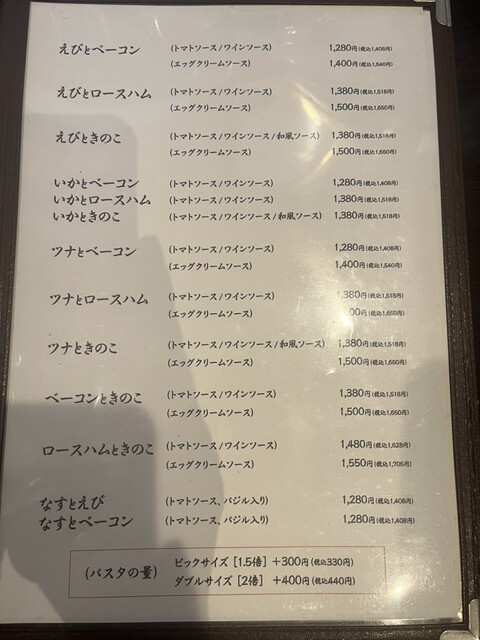 えびとベーコン (トマトソース/ワインソース) 1,280円(税込1,408円)
(エッグクリームソース) 1,400円(税込1,540円)
えびとロースハム (トマトソース/ワインソース) 1,380円(税込1,518円)
(エッグクリームソース) 1,500円(税込1,650円)
えびときのこ (トマトソース/ワインソース/和風ソース) 1,380円(税込1,518円)
(エッグクリームソース) 1,500円(税込1,650円)
いかとベーコン (トマトソース/ワインソース) 1,280円(税込1,408円)
いかとロースハム (トマトソース/ワインソース) 1,380円(税込1,518円)
いかときのこ (トマトソース/ワインソース/和風ソース) 1,380円(税込1,518円)
ツナとベーコン (トマトソース/ワインソース) 1,280円(税込1,408円)
(エッグクリームソース) 1,400円(税込1,540円)
ツナとロースハム (トマトソース/ワインソース) 1,380円(税込1,518円)
(エッグクリームソース) (税込1,650円)
ツナときのこ (トマトソース/ワインソース/和風ソース) 1,380円(税込1,518円)
(エッグクリームソース) 1,500円(税込1,650円)
ベーコンときのこ (トマトソース/ワインソース) 1,380円(税込1,518円)
(エッグクリームソース) 1,500円(税込1,650円)
ロースハムときのこ (トマトソース/ワインソース) 1,480円(税込1,628円)
(エッグクリームソース) 1,550円(税込1,705円)
なすとえび (トマトソース、バジル入り) 1,280円(税込1,408円)
なすとベーコン (トマトソース、バジル入り) 1,280円(税込1,408円)
(パスタの量) ビックサイズ [1.5倍] +300円(税込330円)
ダブルサイズ [2倍] +400円(税込440円)